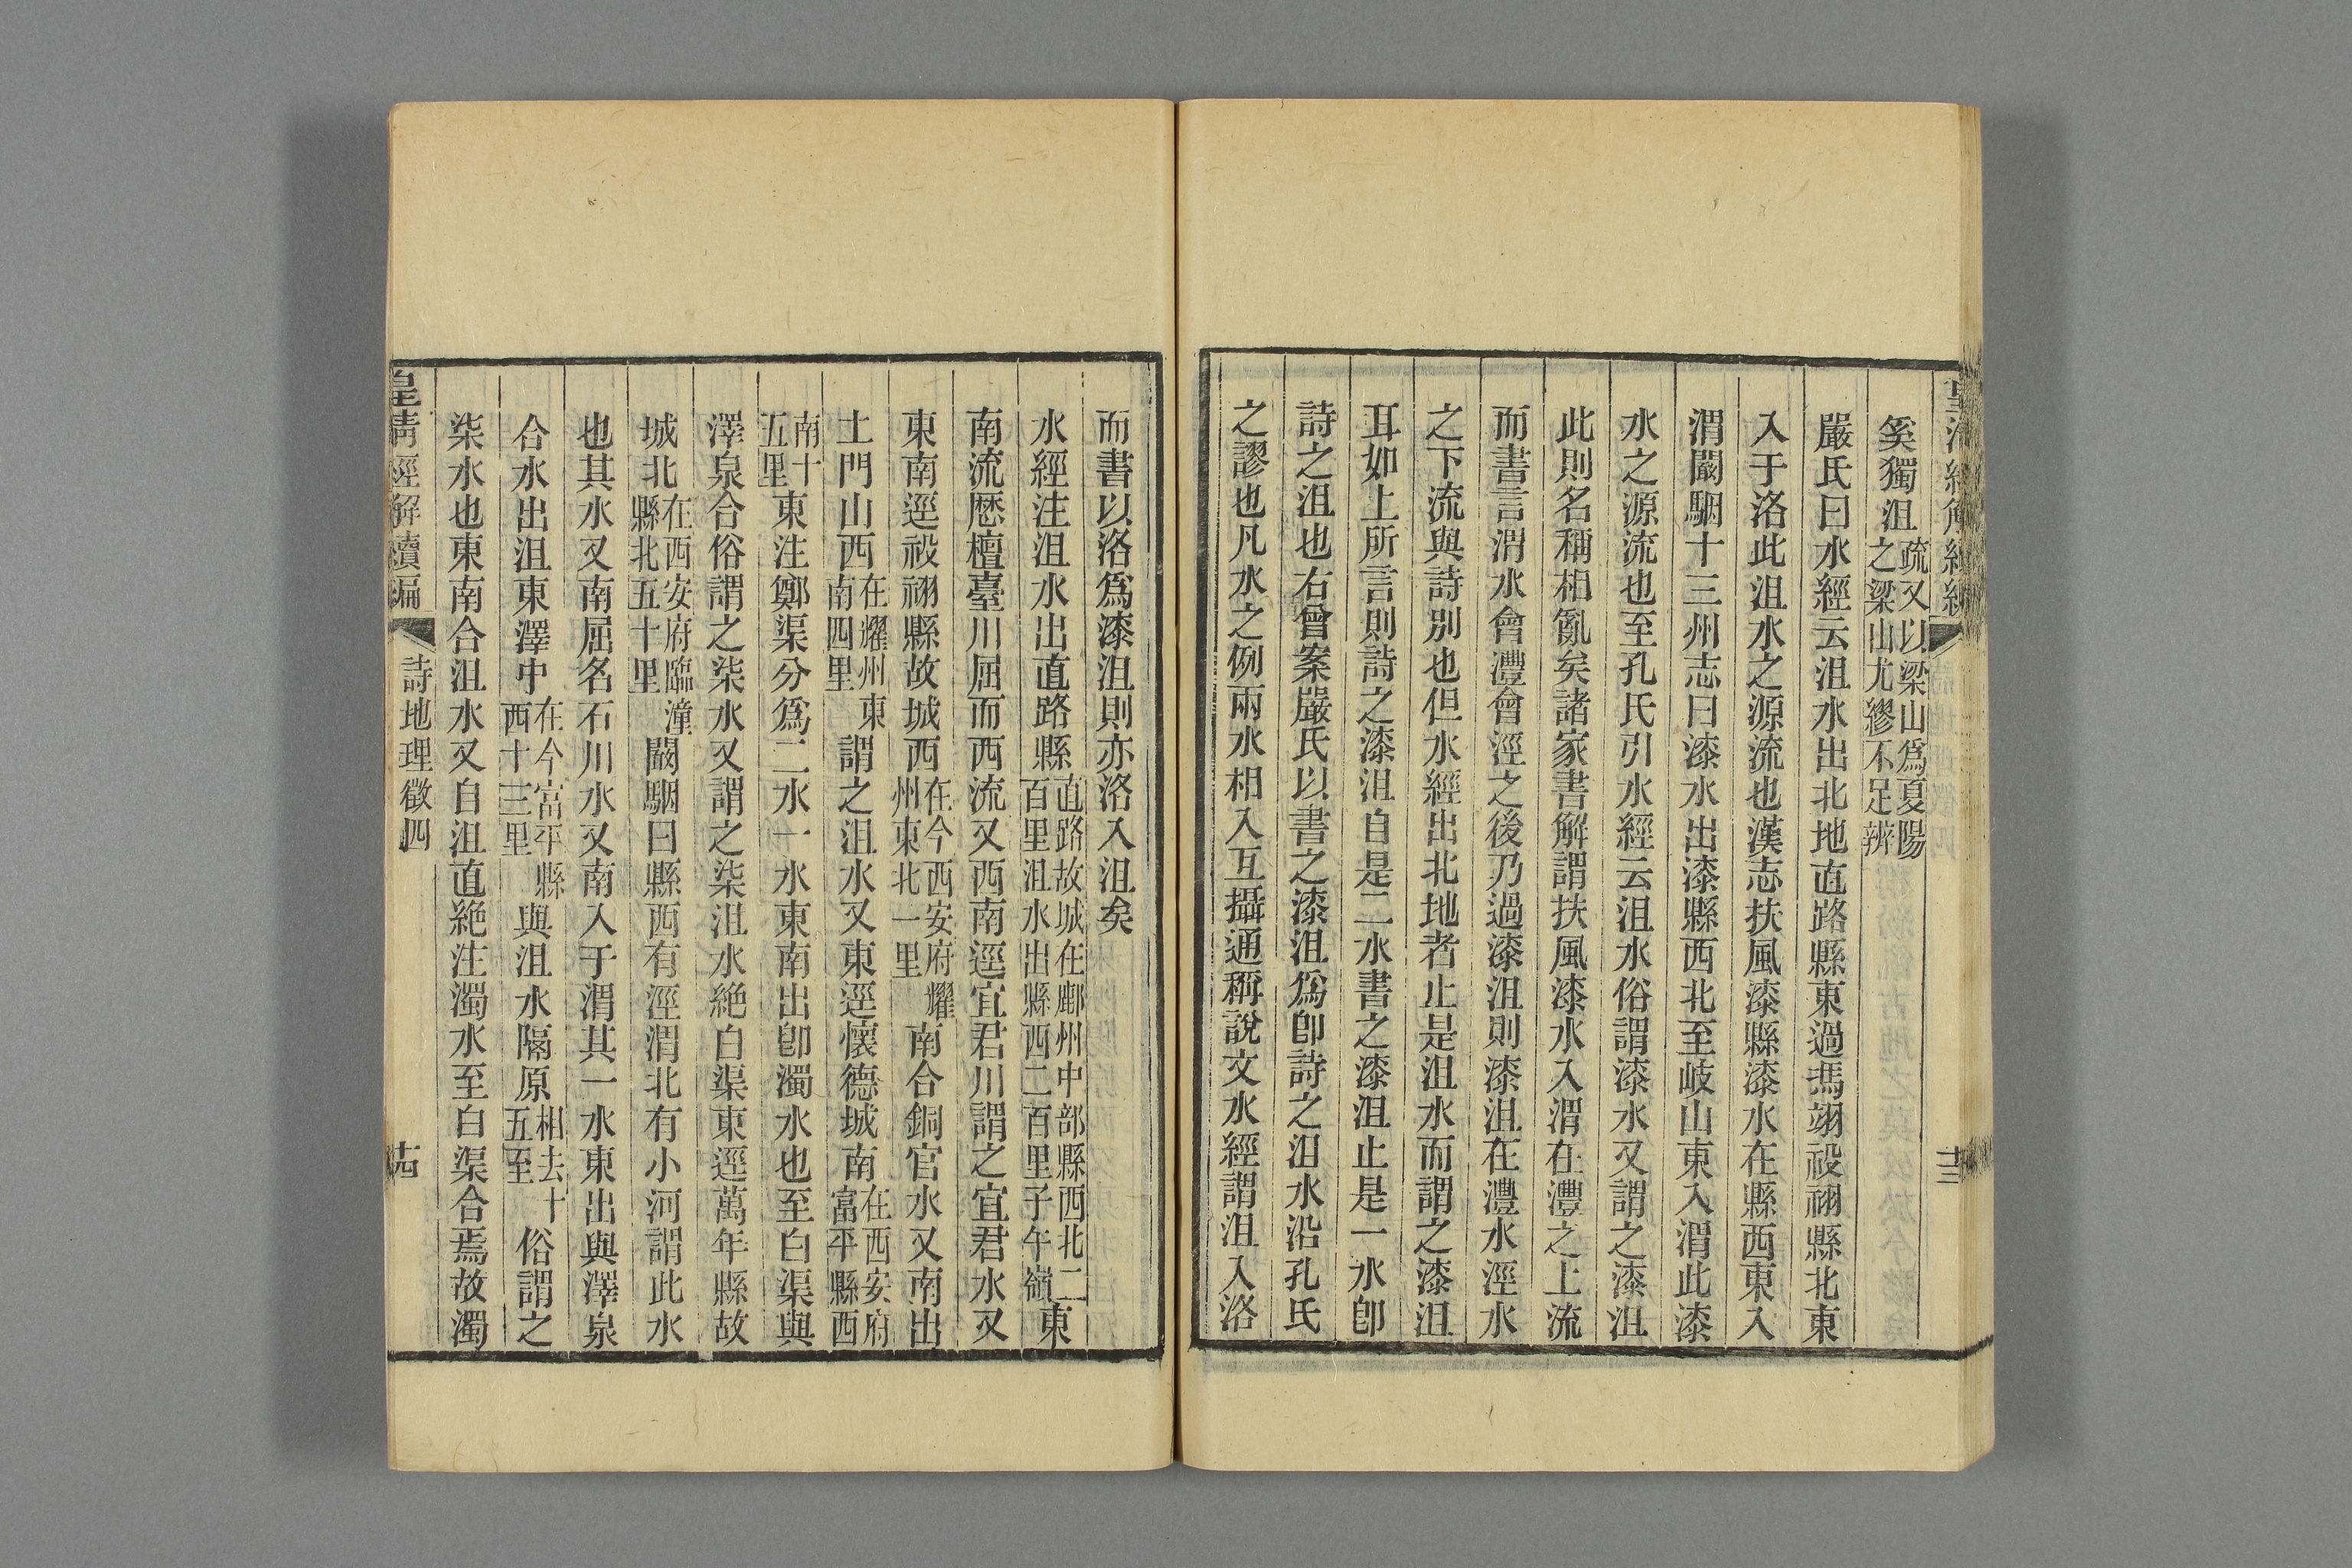 奚獨沮疏又以梁山爲夏陽之梁山尤繆不足辨
嚴氏曰水經云沮水出北地直路縣東過馮翊祋祤縣北東
入于洛此沮水之源流也漢志扶風漆縣漆水在縣西東入
渭闞駰十三州志曰漆水出漆縣西北至岐山東入渭此漆
水之源流也至孔氏引水經云沮水俗謂漆水又謂之漆沮
此則名稱相亂矣諸家書解謂扶風漆水入渭在灃之上流
而書言渭水會灃會涇之後乃過漆沮則漆沮在灃水涇水
之下流與詩別也但水經出北地者止是沮水而謂之漆沮
耳如上所言則詩之漆沮自是二水書之漆沮止是一水卽
詩之沮也右曾案嚴氏以書之漆沮爲卽詩之沮水沿孔氏
之謬也凡水之例兩水相入互攝通稱說文水經謂沮入洛
而書以洛爲漆沮則亦洛入沮矣
水經注沮水出直路縣直路故城在鄜州中部縣西北二百里沮水出縣西二百里子午嶺東
南流歷檀臺川屈而西流又西南逕宜君川謂之宜君水又
東南逕祋祤縣故城西在今西安府耀州東北一里南合銅官水又南出
土門山西在耀州東南四里謂之沮水又東逕懷德城南在西安府富平縣西
南十五里東注鄭渠分爲二水一水東南出卽濁水也至白渠與
澤泉合俗謂之柒水又謂之柒沮水絶白渠東逕萬年縣故
城北在西安府臨潼縣北五十里闞駰曰縣西有涇渭北有小河謂此水
也其水又南屈名石川水又南入于渭其一水東出與澤泉
合水出沮東澤中在今富平縣西十三里與沮水隔原相去十五至俗謂之
柒水也東南合沮水又自沮直絶注濁水至白渠合焉故濁
皇清經解續編
詩地理徵四
十四